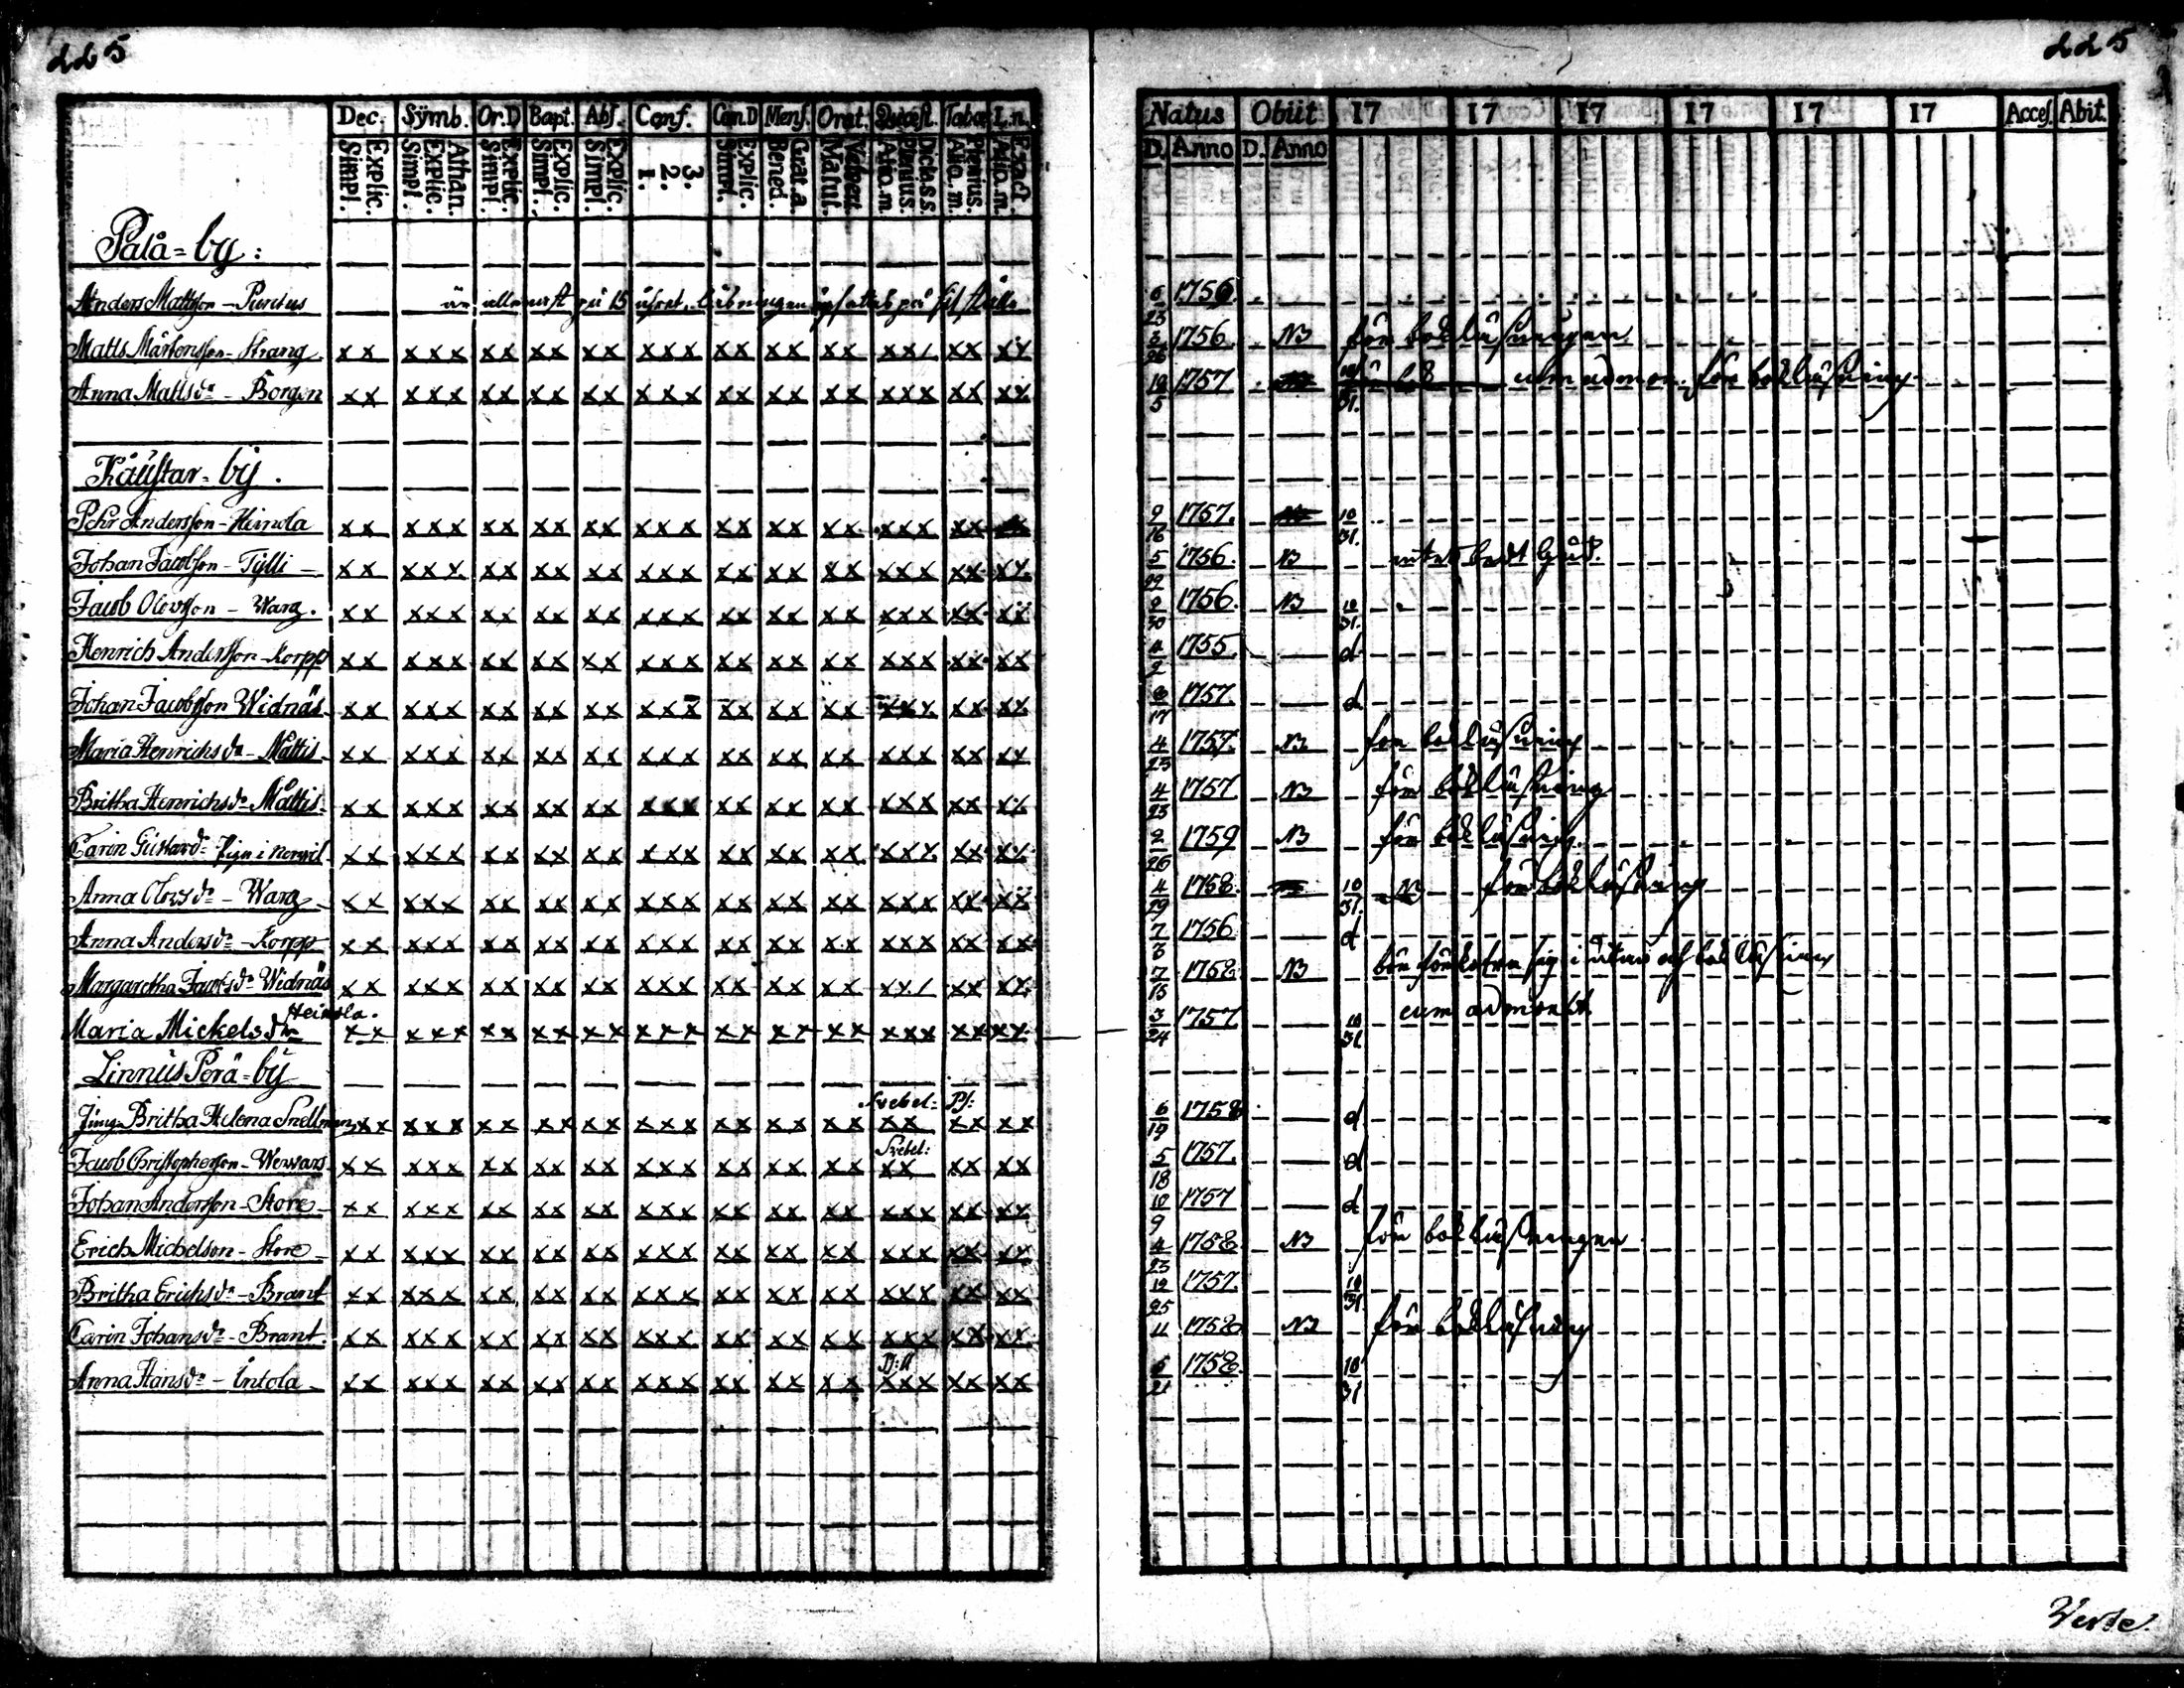 225 225
Dec. Symb. Or.D Bapt. Abs. Conf. Cœn.D Mens. Orat. Quæst. Tabæ L.n.
Explic. Simpl. Athan. Explic. Simpl. Explic. Simpl. Explic. Simpl. Explic. Simpl. 3. 2. 1. Explic. Simpl. Grat. a. Bened. Vespert. Matut. Dicta s.s. Plenius. Alio. m Plenius. Alio. m. Exact Alio. m
Natus Obiit 17 17 17 17 17 17 Acces. Abit.
D. Anno D. Anno
Pala=by:
Anders Mattsson - 6/23 1756.
Matts Mårtensson - Strang xx xxx xx xx xx xxx xx xx xx xx/ xx xx 1756 NB för bokläsningen
Anna Mattsdr - Borgen xx xxx xx xx xx xxx xx xx xx xxx xx xx 10/5 1757 10/31. för bokläsning
Kaustar=by.
Pehr Andersson - Heimola xx xxx xx xx xx xxx xx xx xx xxx xx 9/16 1757. 10/31.
Johan Jacobsson - Tylli xx xxx xx xx xx xxx xx xx xx xxx xx xx 5/29 1756. NB
Jacob Olovsson - Warg. xx xxx xx xx xx xxx xx xx xx xxx xx xx 9/30 1756. NB 10/31.
Henrich Andersson - Korpp xx xxx xx xx xx xxx xx xx xx xxx xx xx 4/2 1755 d
Johan Jacobsson Widnäs xx xxx xx xx xx xxx xx xx xx xxx xx xx 8/17 1757. d
Maria Henrichsdr - Mattis xx xxx xx xx xx xxx xx xx xx xxx xx xx 4/23 1757. NB för bokläsning
Britha Henrichsdr Mattis xx xxx xx xx xx xxx xx xx xx xxx xx xx 4/23 1757 NB för bokläsning
Carin Gustavdr xx xxx xx xx xx xxx xx xx xx xxx xx xx 2/26 1759 NB för bokläsning.
Anna Olovsdr - Warg xx xxx xx xx xx xxx xx xx xx xxx xx xx 4/29 1758. 10/31. NB för bokläsning
Anna Andersdr - Korpp xx xxx xx xx xx xxx xx xx xx xxx xx xx 7/3 1756 d
Margaretha Jacobsdr Widnäs xx xxx xx xx xx xxx xx xx xx xx/ xx xx 7/15 1758. NB bör förbättra sig i utan och bokläsning
Heimola.
Maria Mickelsdr xx xxx xx xx xx xxx xx xx xx xxx xx xx 3/24 1757 10/31 cum admonit
Linnus Perä=by
Svebel: Ps:
Jung. Britha Helena Snellman xx xxx xx xx xx xxx xx xx xx xx xx xx 6/19 1758 d
Svebel:
Jacob Christophersson - xx xxx xx xx xx xxx xx xx xx xx xx xx 5/18 1757. d
Johan Andersson - Store xx xxx xx xx xx xxx xx xx xx xxx xx xx 10/9 1757 d
Erich Michelson - Store xx xxx xx xx xx xxx xx xx xx xxx xx xx 4/23 1758 NB för bokläsningen.
Britha Erichsdr - Brant xx xxx xx xx xx xxx xx xx xx xxx xx xx 12/25 1757. 10/31
Carin Johansdr - Brant. xx xxx xx xx xx xxx xx xx xx xxx xx xx 11 1758 NB för bokläsning
Anna Hansdr - Indola xx xxx xx xx xx xxx xx xx xx xxx xx xx 1758. 10/31
Verte.